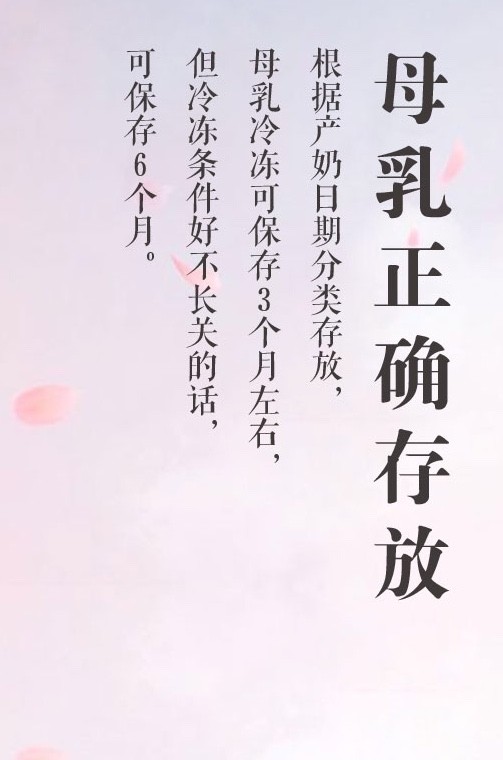 母乳正确存放
根据产奶日期分类存放，
母乳冷冻可保存3个月左右，
但冷冻条件好不长关的话，
可保存6个月。